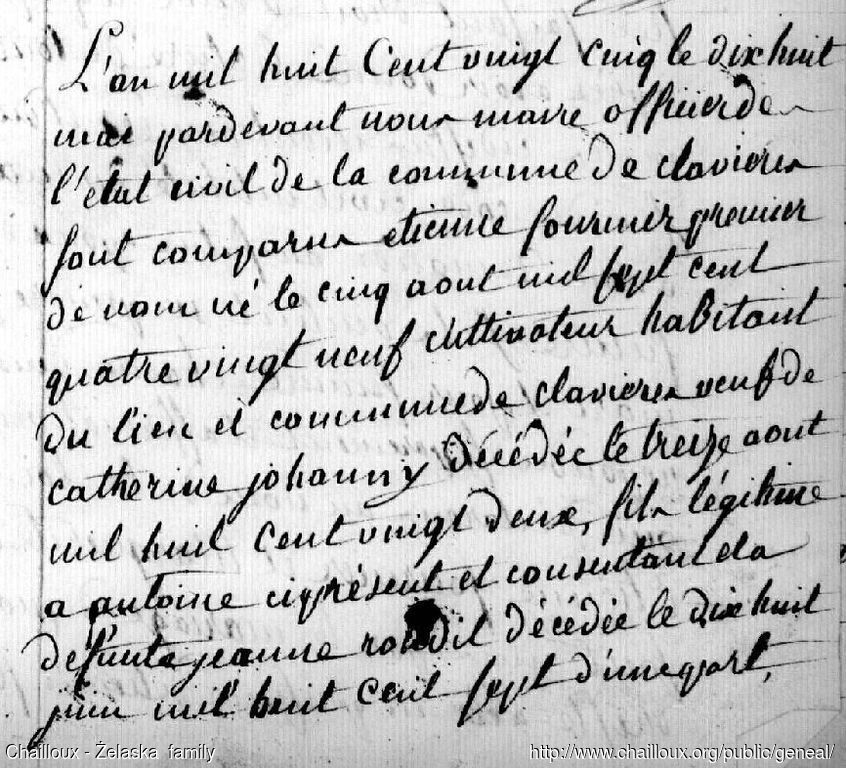 L'an mil huit Cent vingt cinq le dix huit
mai pardevant nous maire officier de
l'état civil de la commune de clavieres
sont comparus etienne fournier premier
de nom né le cinq aout mil sept cent
quatre vingt neuf cultivateur habitant
du lieu et commune de clavieres veuf de
catherine johanny décédée le treize aout
mil huit cent vingt deux, fils légitime
a antoine ci présent et consentant et a
defunte jeanne roudil décédée le dix huit
juin mil huit cent sept d'une part,
Chailloux - Želaska family
http://www.chailloux.org/public/geneal/